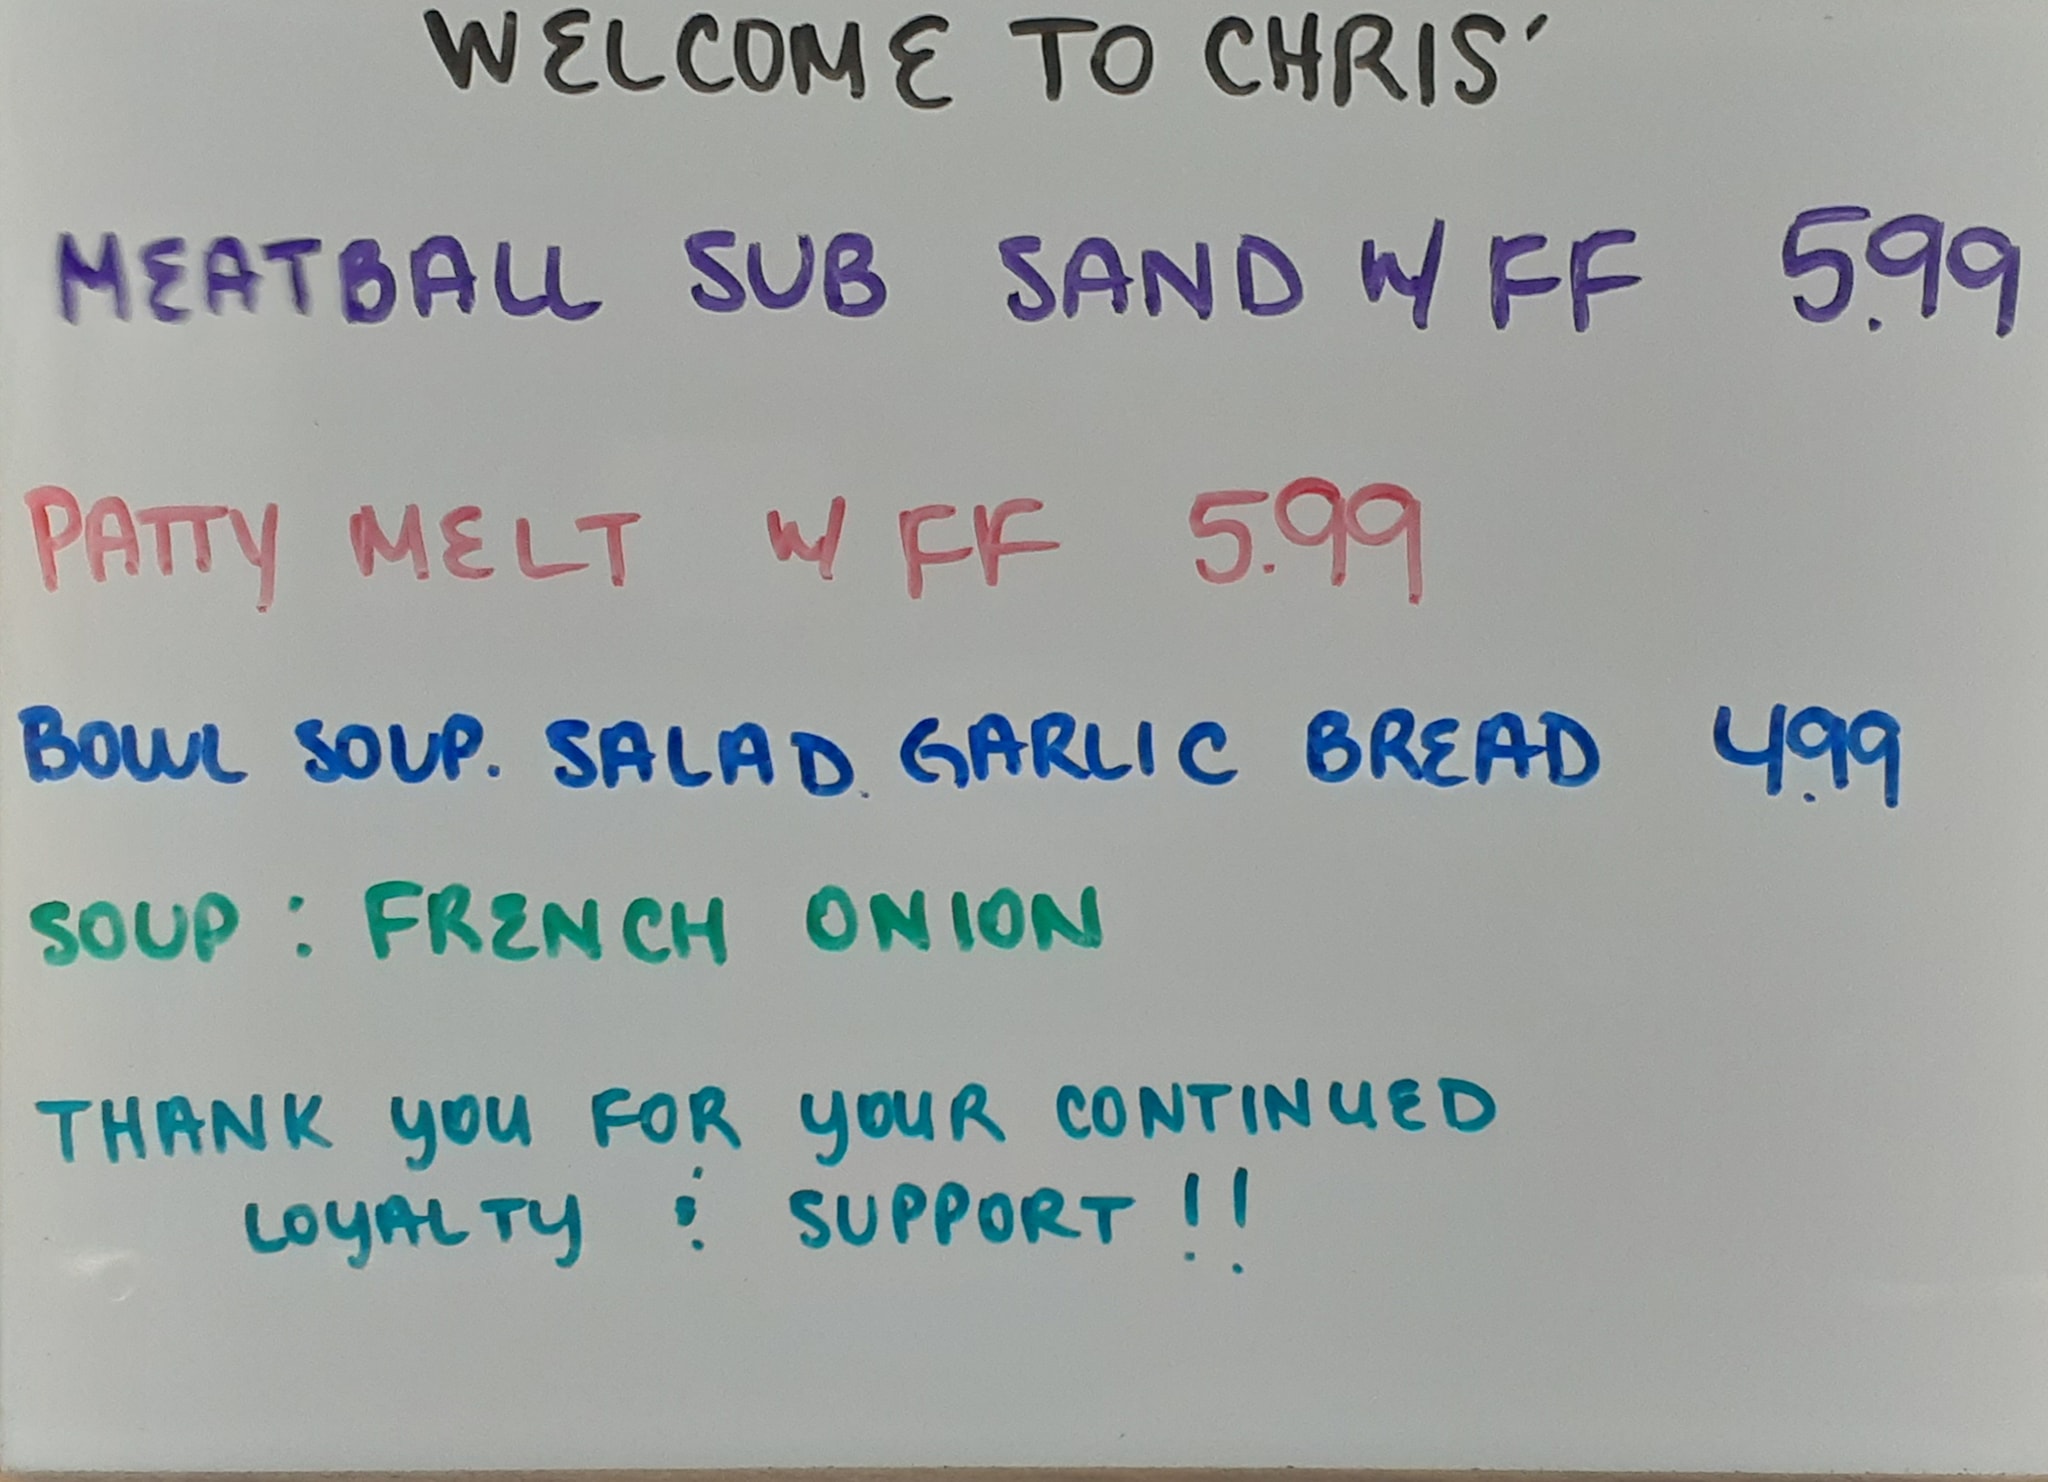 WELCOME TO CHRIS'
MEATBALL SUB SAND W/ FF 5.99
PATTY MELT W/ FF 5.99
BOWL SOUP. SALAD. GARLIC BREAD 4.99
SOUP: FRENCH ONION
THANK YOU FOR YOUR CONTINUED
LOYALTY & SUPPORT!!